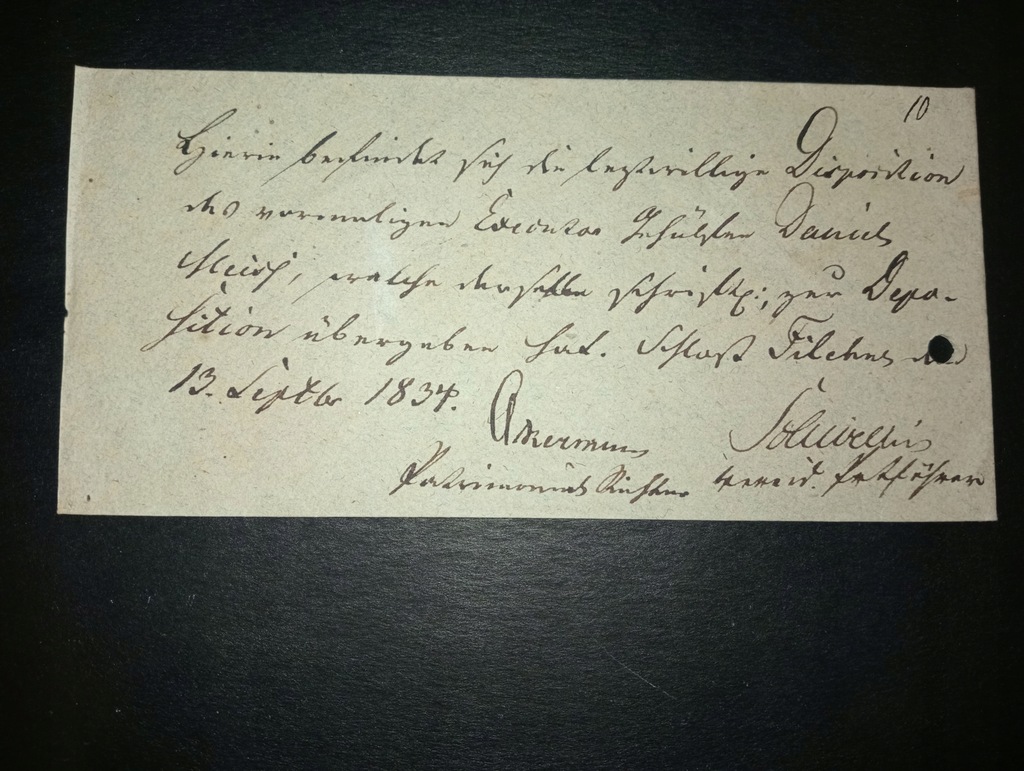 10
Hierin befindet sich die letztwillige Disposition
des vormaligen Executor Gehülfen Daniel
welche derselbe schriftl: zur Depo-
sition übergeben hat. Schloß Filehne den
13. Septbr 1834.
Akermann
Patrimonial Richter vereid. Protführer